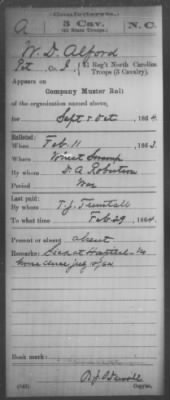 (Confederate.)
A 3 Cav. N.C.
(41 State Troops.)
W. D. Alford
Pvt, Co. I, 41 Reg't North Carolina
Troops (3 Cavalry).
Appears on
Company Muster Roll
of the organization named above,
for Sept & Oct, 1864
Enlisted:
When Feb. 11, 1863.
Where
By whom D. A. Robertson
Period War
Last paid:
By whom T. J.
To what time Feb 29, 1864.
Present or absent absent
Remarks: Sick at
home since July
Book mark:
(642) Copyist.